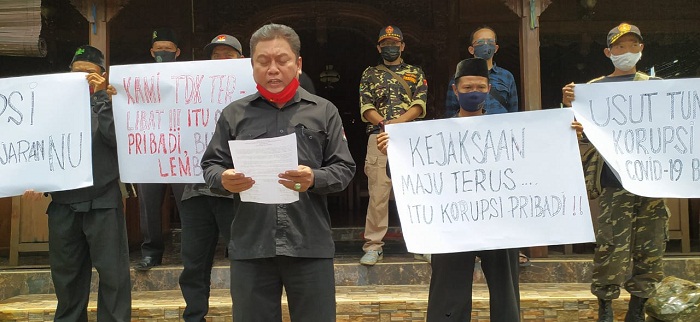 PSI
JARAN NU
KAMI TDK TER-
LIBAT !!! ITU
PRIBADI,
LEM
KEJAKSAAN
MAJU TERUS ....
ITU KORUPSI PRIBADI !!
USUT TUN
KORUPSI
COVID-19 B